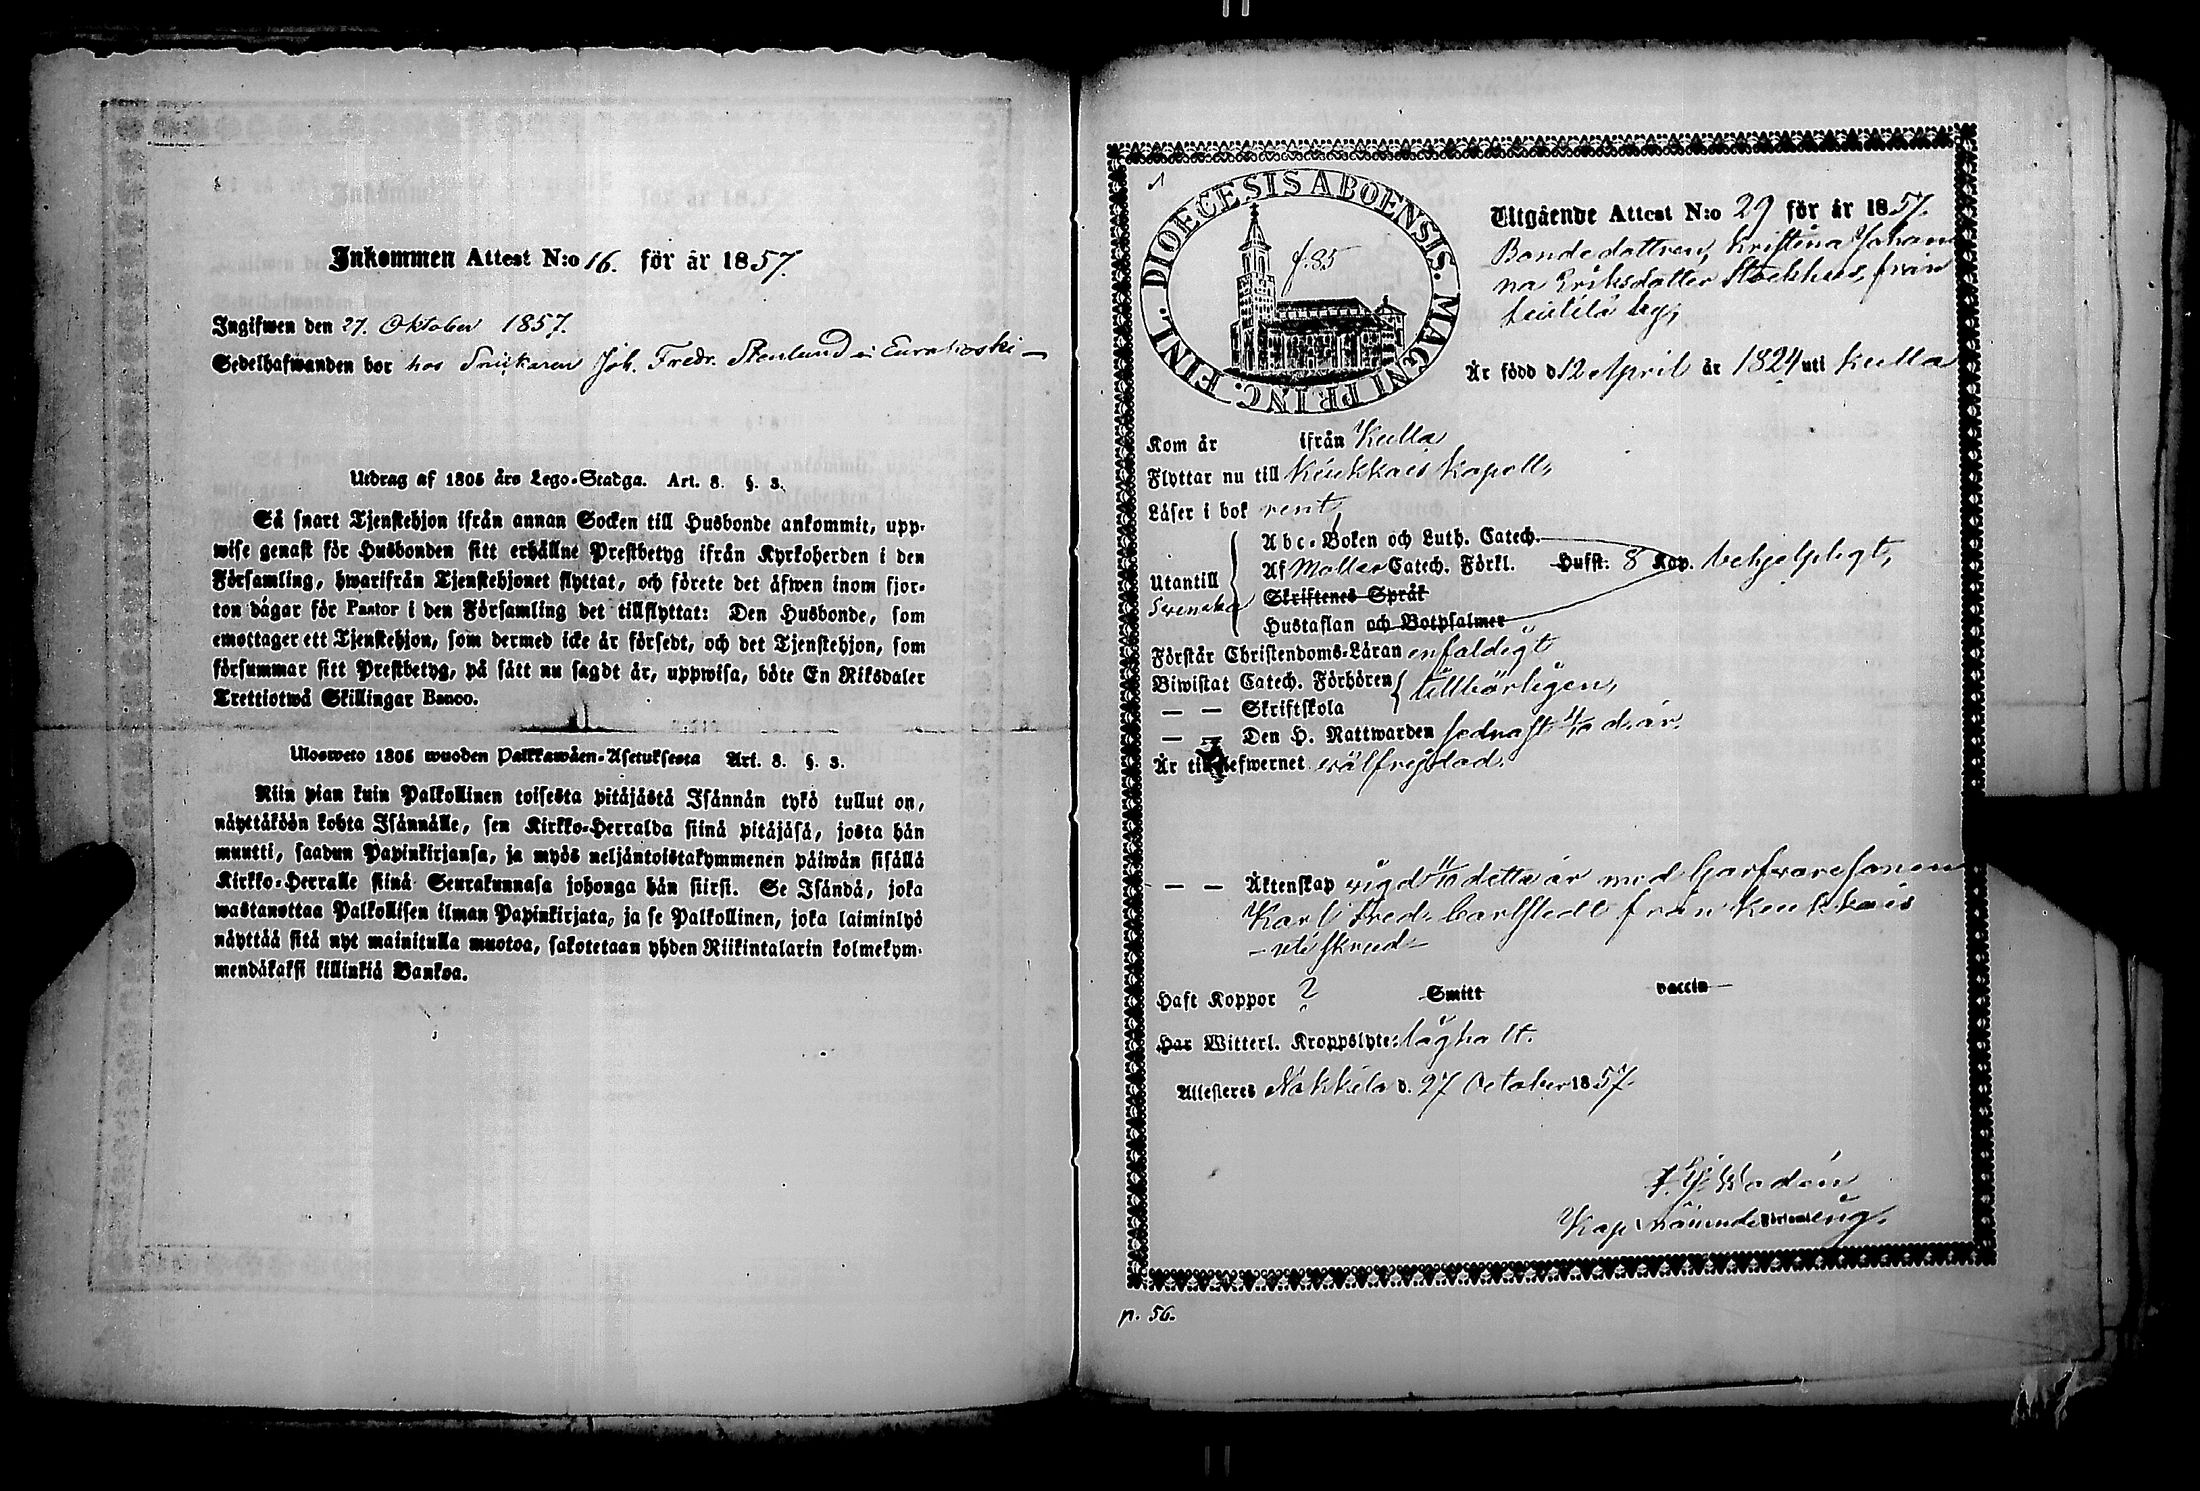 Inkommen Attest N:o 16. för år 1857.
Ingifwen den 27. Oktober 1857.
Sedelhafwanden bor hos Snickaren Joh. Fredr. Stenlund i Eurakoski —
Utdrag af 1805 års Lego-Stadga. Art. 8. §. 3.
Så snart Tjenstehjon ifrån annan Socken till Husbonde ankommit, upp-
wise genast för Husbonden sitt erhållne Prestbetyg ifrån Kyrkoherden i den
Församling, hwarifrån Tjenstehjonet flyttat, och förete det äfwen inom fjor-
ton dagar för Pastor i den Församling det tillflyttat: Den Husbonde, som
emottager ett Tjenstehjon, som dermed icke är försedt, och det Tjenstehjon, som
försummar sitt Prestbetyg, på sätt nu sagdt är, uppwisa, böte En Riksdaler
Trettiotwå Skillingar Banco.
Ulosweto 1805 wuoden Palkkawäen-Asetuksesta Art. 8. §. 3.
Niin pian kuin Palkollinen toisesta pitäjästä Isännän tykö tullut on,
näyttäköön kohta Isännälle, sen Kirkko-Herralda siinä pitäjäsä, josta hän
muutti, saadun Papinkirjansa, ja myös neljäntoistakymmenen päiwän sisällä
Kirkko-Herralle siinä Seurakunnasa johonga hän siirsi. Se Isändä, joka
wastanottaa Palkollisen ilman Papinkirjata, ja se Palkollinen, joka laiminlyö
näyttää sitä nyt mainitulla muotoa, sakotetaan yhden Riikintalarin kolmekym-
mendäkaksi killinkiä Bankoa.
FINL. DIOECESIS ABOENSIS. MAGNI PRINC.
f. 85
Utgående Attest N:o 29 för år 1857.
Bondedottren, Kristina Johan
na Eriksdotter Stockhus, från
Leistilä by,
Är född d 12 April år 1824 uti Kulla
Kom år ifrån Kulla
Flyttar nu till Keukkais Kapell,
Läser i bok rent,
Utantill
Svenska
Abc-Boken och Luth. Catech.
Af Möller Catech. Förkl. Husst: 8 Kap. behjelpligt,
Skriftenes Språk
Hustaflan och Botpsalmer
Förstår Christendoms-Läran enfaldigt
Biwistat Catech. Förhören tillbörligen,
— — Skriftskola
— — Den H. Nattwarden sednast 4/10 d. år.
Är till lefwernet wälfrejdad.
— — Äktenskap vigd 11/10 detta år med Garfwaresonen
Karl Fred. Carlstedt från Keukkais
— utiskrud —
Haft Koppor ? Smitt vaccin
Har Witterl. Kroppslyte: låghalt.
Attesteres Nakkila d. 27 October 1857.
Wadén
Kap. i nämnde Församl eng.
p. 56.